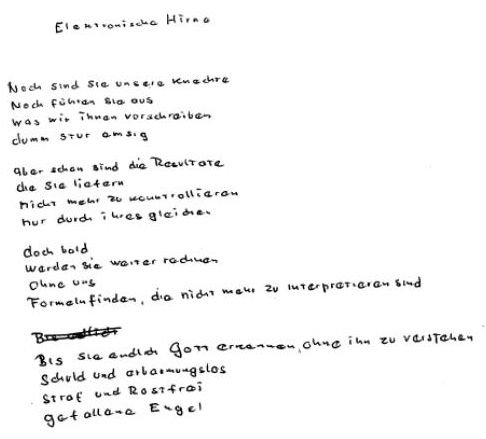 Elektronische Hirne
Noch sind sie unsere Knechte
Noch führen sie aus
was wir ihnen vorschreiben
dumm stur emsig
aber schon sind die Resultate
die sie liefern
nicht mehr zu kontrollieren
nur durch ihresgleichen
doch bald
werden sie weiter rechnen
ohne uns
Formeln finden, die nicht mehr zu interpretieren sind
Bis sie endlich Gott erkennen, ohne ihn zu verstehen
Schuld und erbarmungslos
Straf und Rostfrei
gefallene Engel